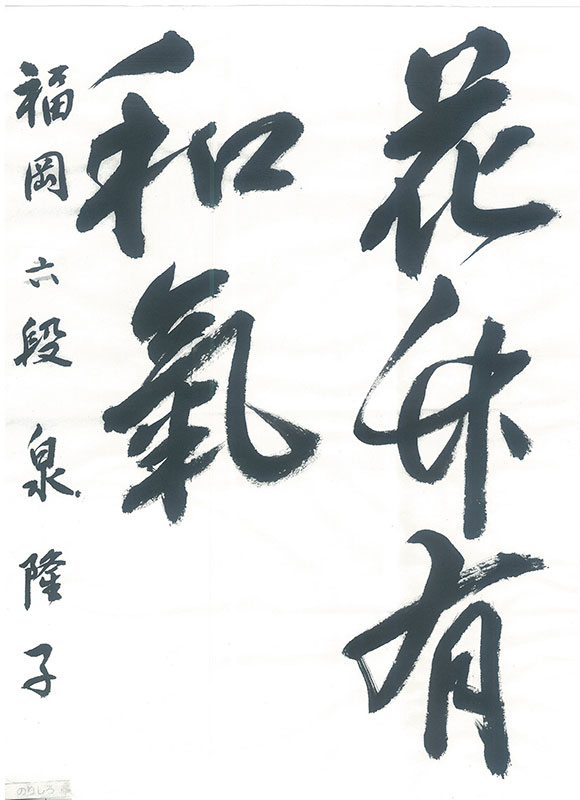 花竹有
和氣
福岡 六段 泉 隆子
のりしろ